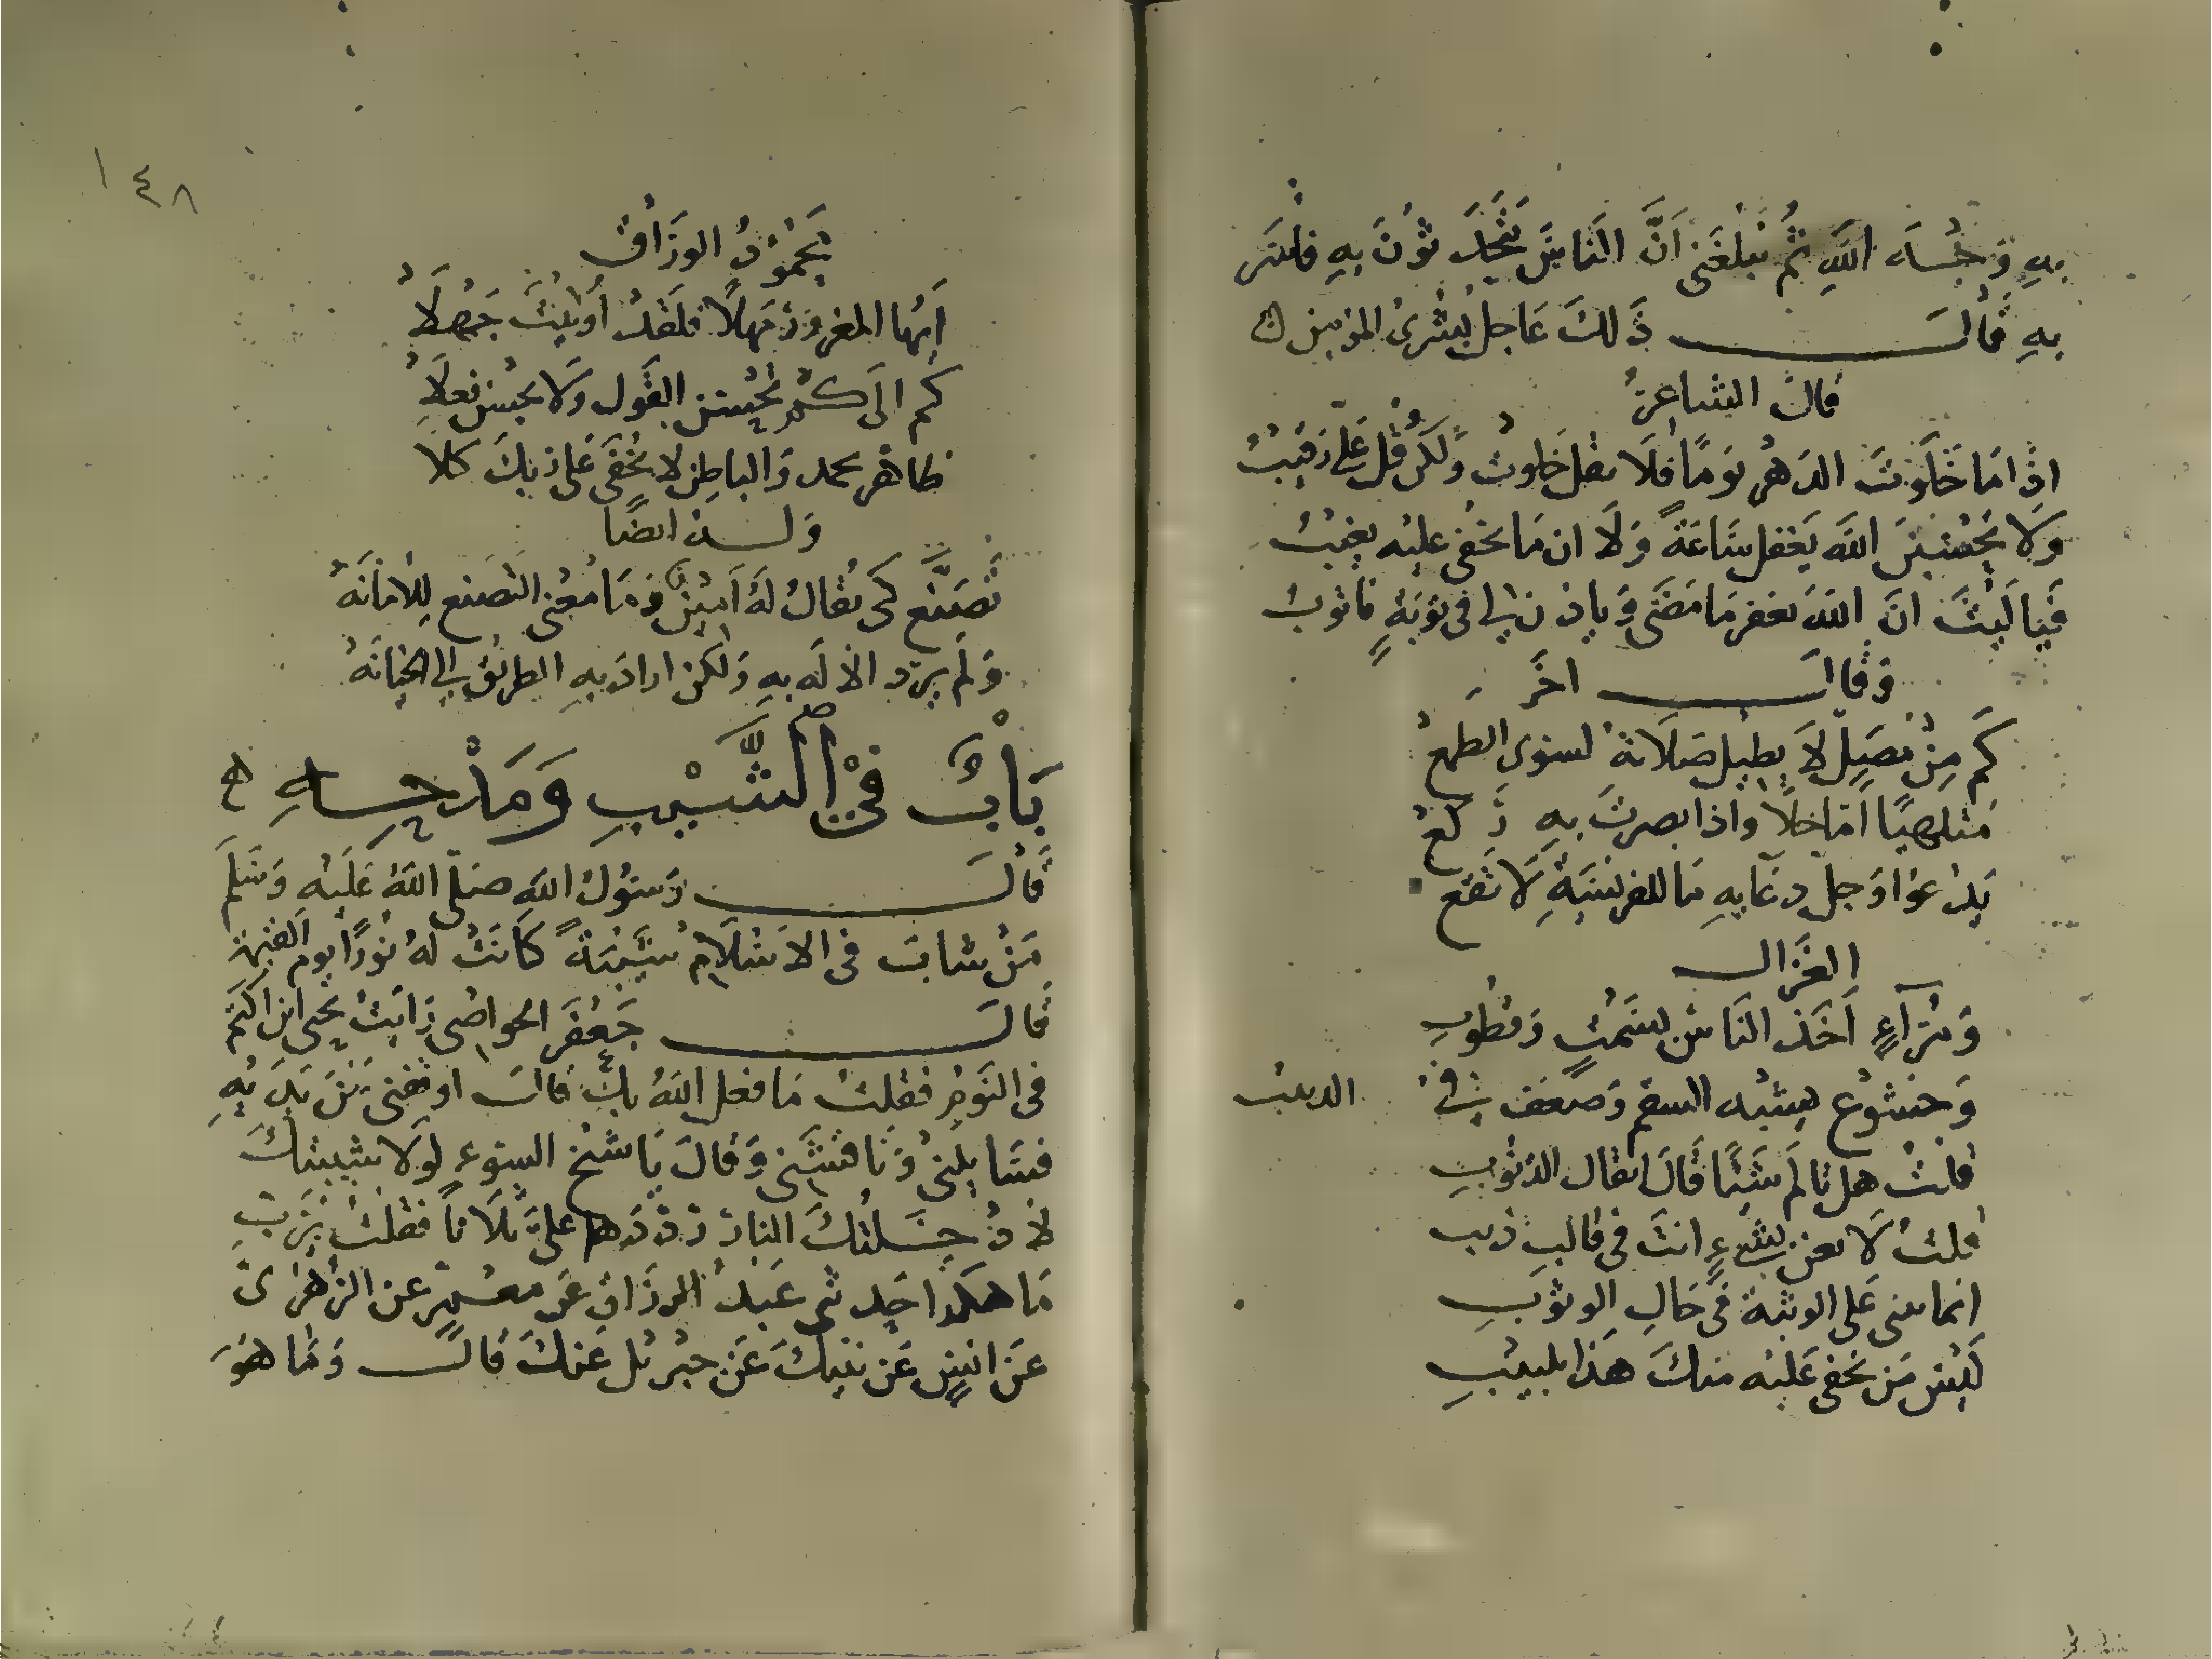 به وجه الله ثم يبلغني أن الناس يتحدثون به فأسر
به قال ذلك عاجل بشرى المؤمن
قال الشاعر
اذا ما خلوت الدهر يوما فلا تقل خلوت ولكن قل علي رقيب
ولا تحسبن الله يغفل ساعة ولا ان ما تخفي عليه يغيب
فيا ليت ان الله يغفر ما مضى وياذن لي في توبة فاتوب
وقال اخر
كم من مصل لا يطيل صلاته لسوى الطمع
متلهيا اما خلا واذا بصرت به ركع
يدعوا وجل دعايه ما للفريسة لا تقع
الغزال
ومراء اخذ الناس بسمت وقطوب
وخشوع يشبه السقم وضعف في الدبيب
قلت هل تالم شيئا قال اثقال الذنوب
قلت لا تعن بشيء انت في قالب ذيب
انما تبني على الوثبة في حال الوثوب
ليس من يخفى عليه منك هذا بلبيب
١٤٨
محمود الوراق
ايها المغرور مهلا فلقد أوتيت جهلا
كم الى كم تحسن القول ولا تحسن فعلا
ظاهر يحمد والباطن لا يخفى على ربك كلا
وله ايضا
تصنع كي يقال له امين وما معنى التصنع للامانه
ولم يرد الاله به ولكن اراد به الطريق الى الخيانه
باب في الشيب ومدحه
قال رسول الله صلى الله عليه وسلم
من شاب في الاسلام شيبة كانت له نورا يوم القيمة
قال جعفر الخواص رايت يحيى ابن اكثم
في النوم فقلت ما فعل الله بك قال اوقفني بين يديه
فسايلني وناقشني وقال يا شيخ السوء لولا شيبتك
لاذ جسدك النار رددها علي ثلاثا فقلت يرب
ما هكذا حدثني عبد الرزاق عن معمر عن الزهري
عن انس عن نبيك عن جبريل عنك قال وما هو